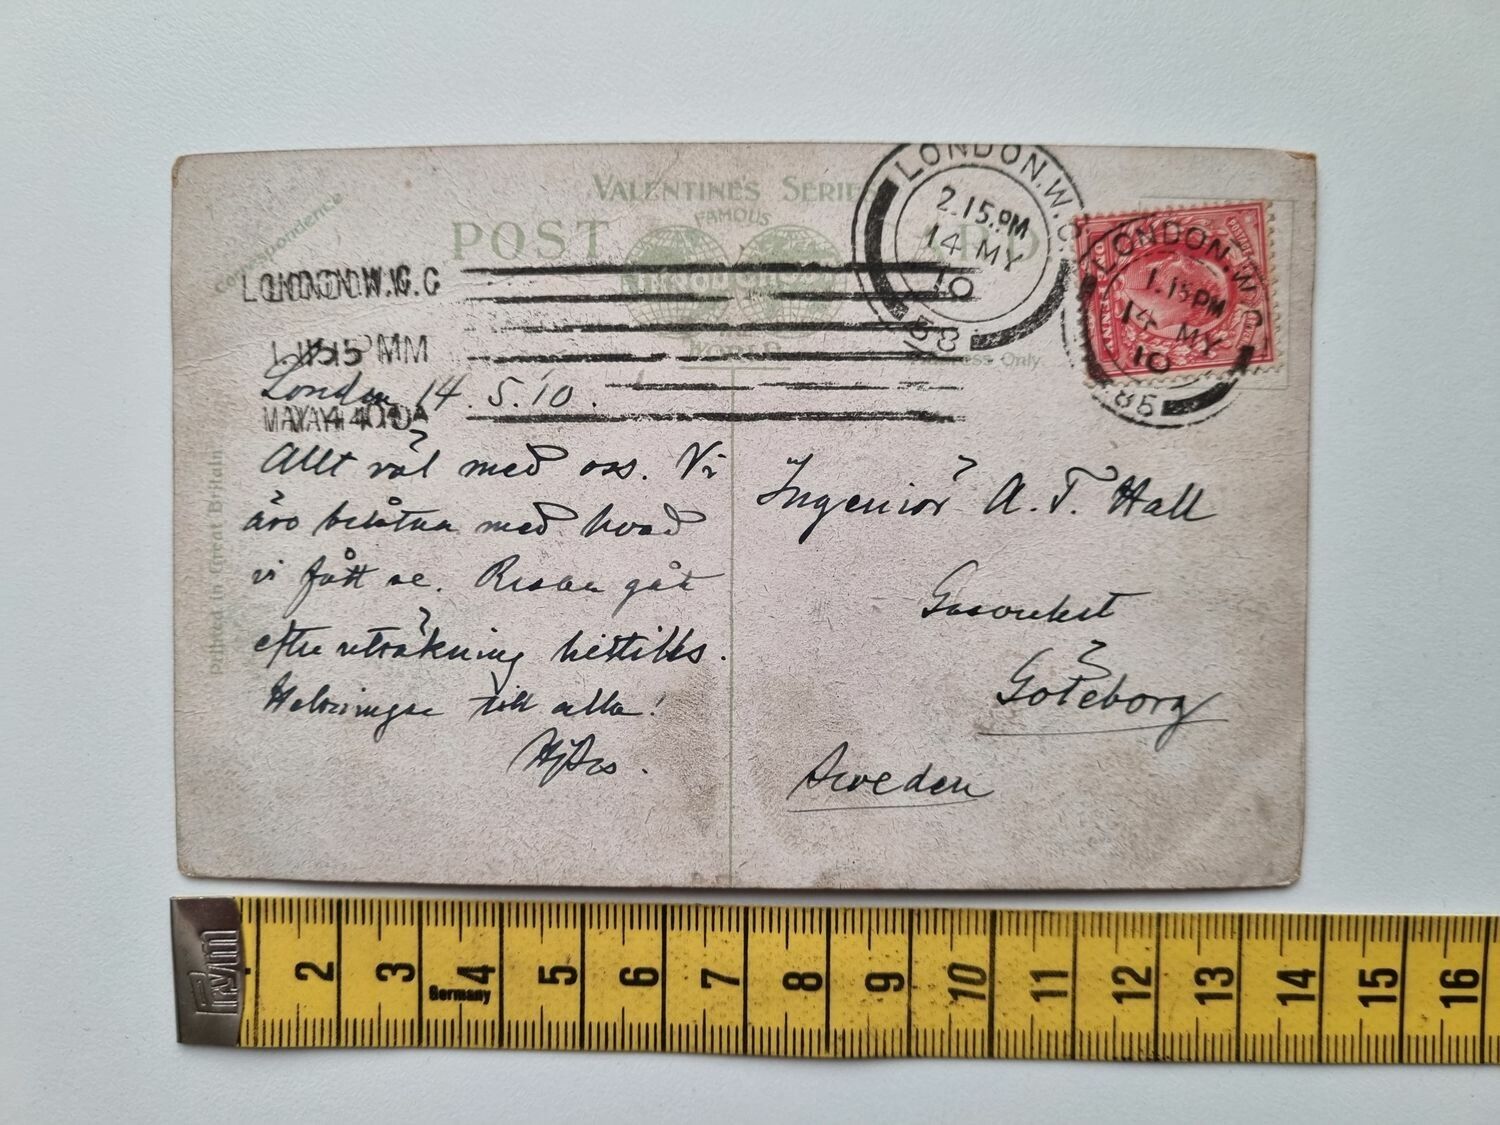 VALENTINE'S SERIES
FAMOUS
POST CARD
THROUGHOUT
THE
WORLD
Correspondence
Address Only
Printed in Great Britain
LONDON.W.C
2.15.PM
14 MY
10
38
LONDON.W.C
1.15 PM
14 MY
10
LONDON.W.C
1.15 PM
MAY 14 10
London 14.5.10.
Allt väl med oss. Vi
äro belåtna med hvad
vi fått se. Resan gått
efter uträkning hittills.
Helsningar till alla!
Ingeniör A. F. Hall
Gasverket
Göteborg
Sweden
POSTAGE
ONE PENNY
Prym
Germany
2 3 4 5 6 7 8 9 10 11 12 13 14 15 16